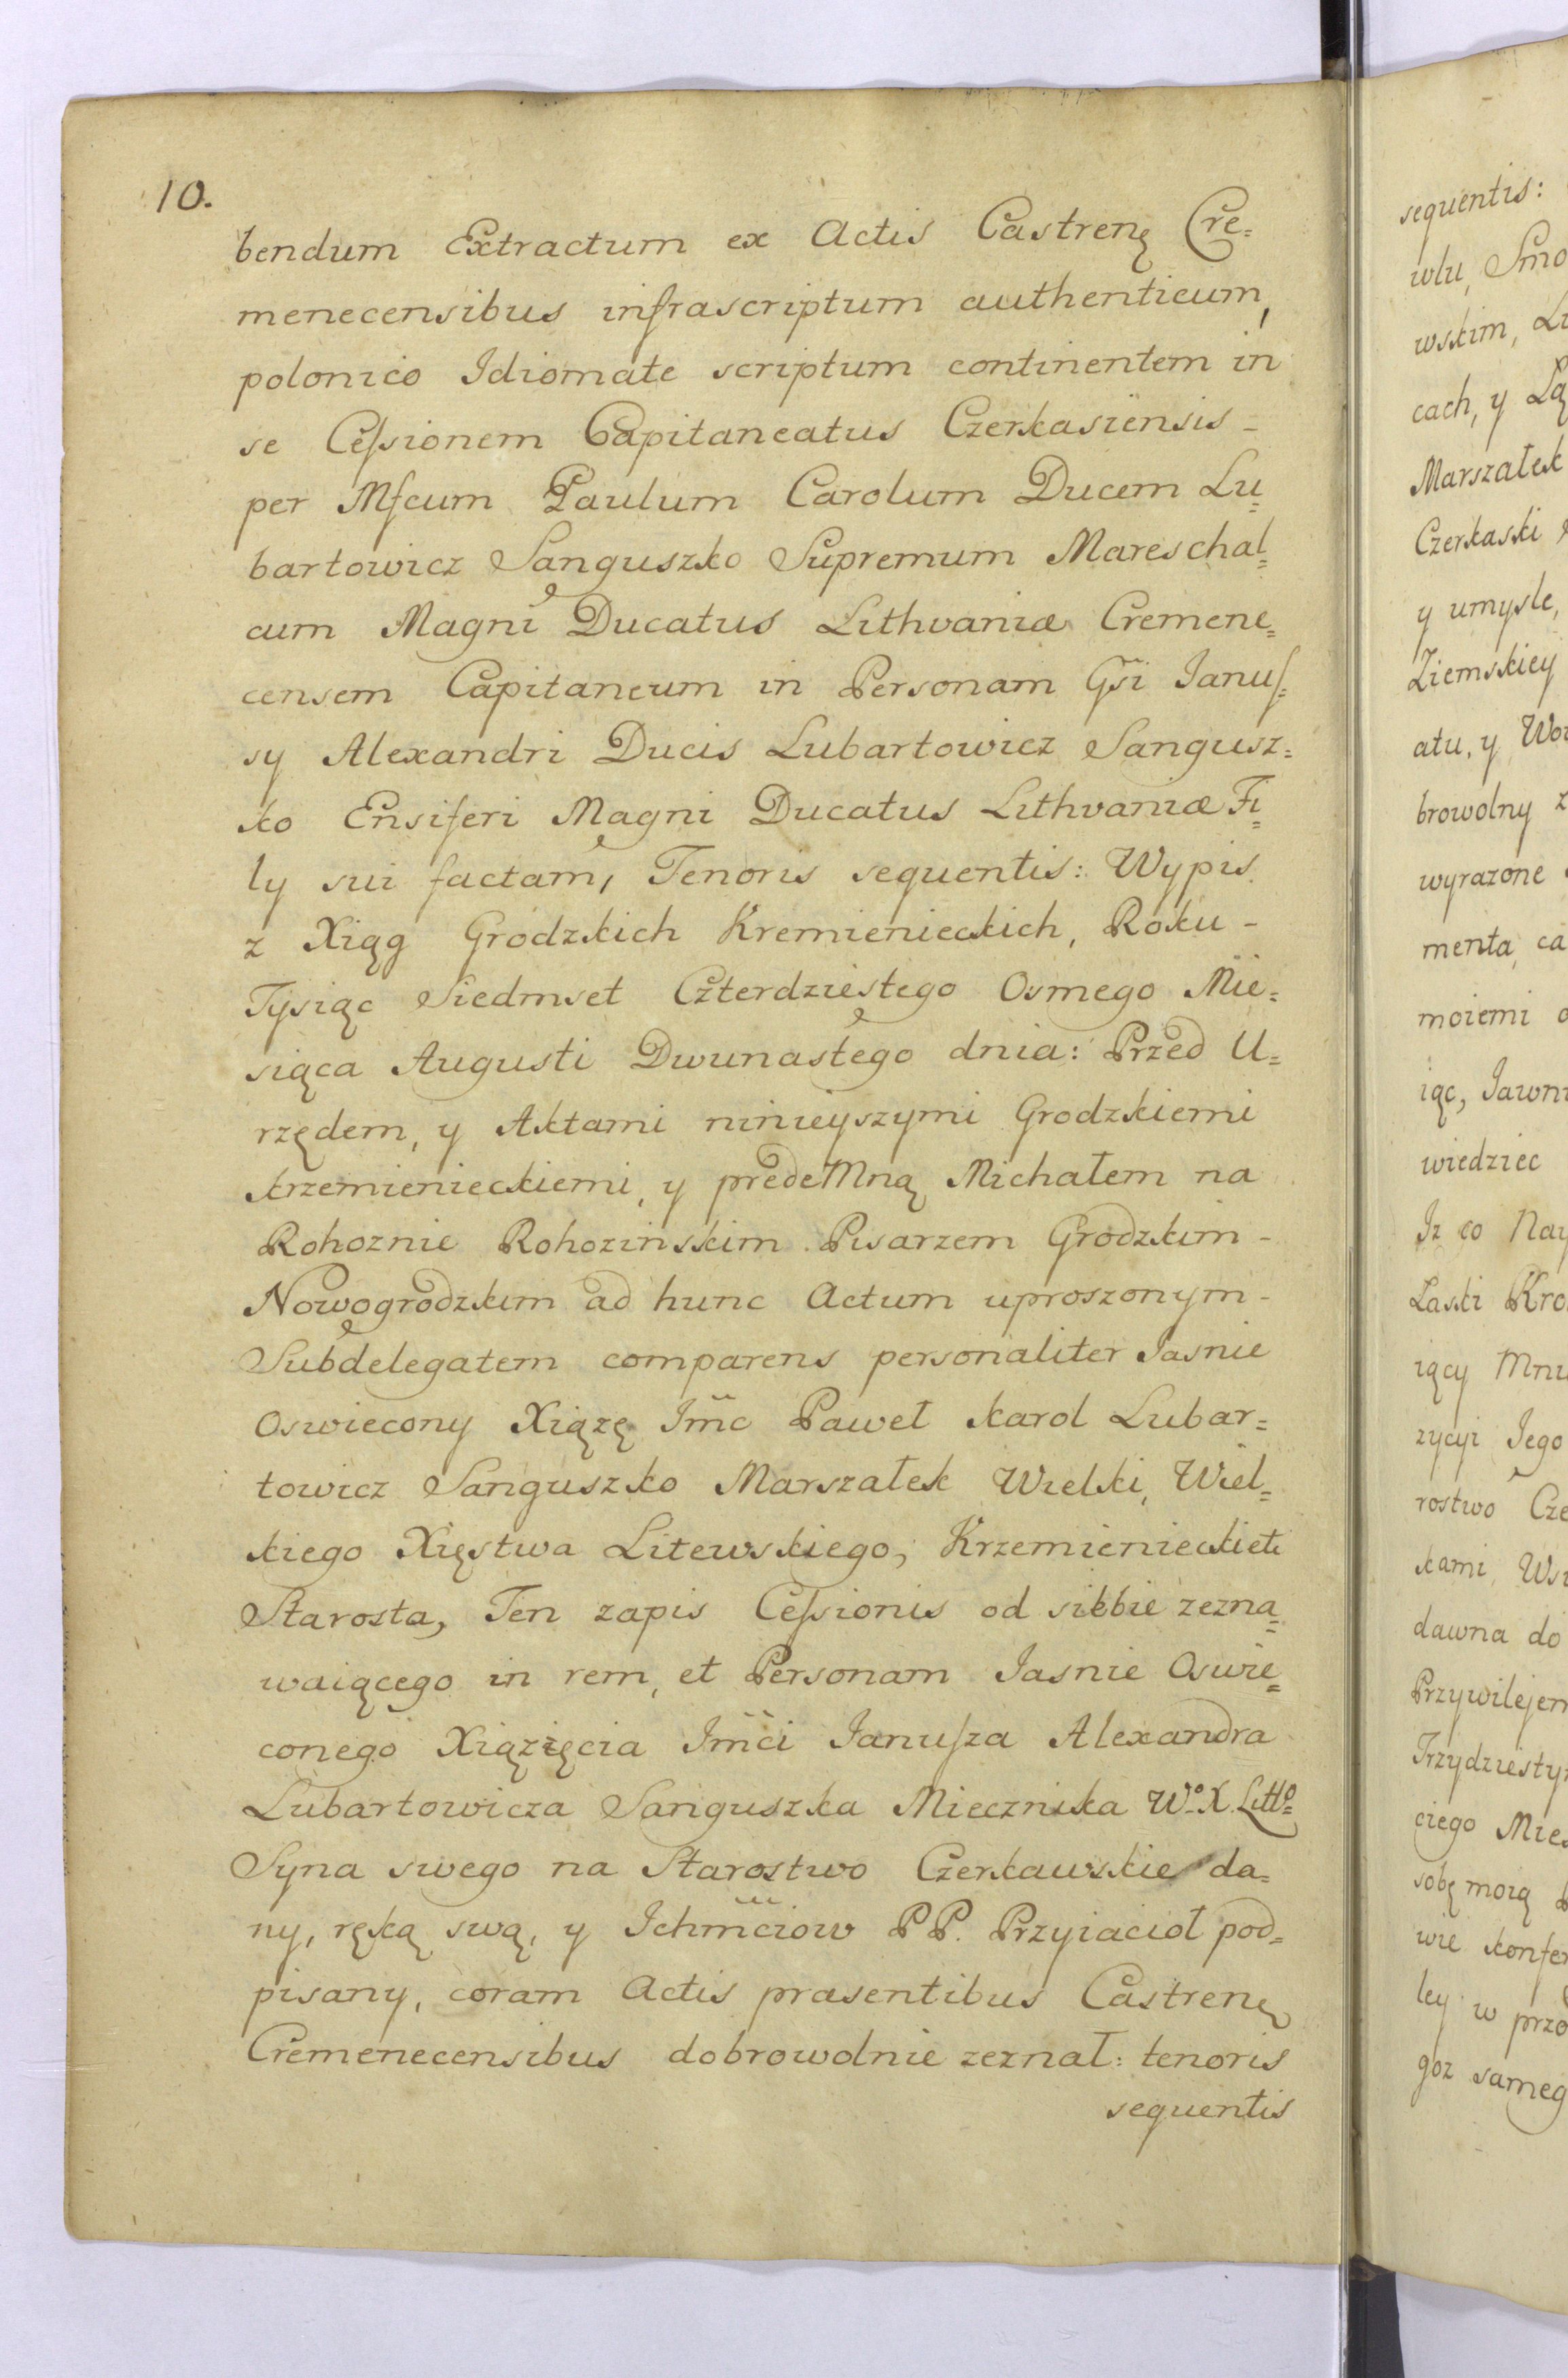 10.
bendum Extractum ex Actis Castrenę Cre=
menecensibus infrascriptum authenticum,
polonico Idiomate scriptum continentem in
se Ceſsionem Capitaneatus Czerkasiensis -
per Mfcum Paulum Carolum Ducem Lu=
bartowicz Sanguszko Supremum Mareschal=
cum Magni Ducatus Lithvaniæ Cremene=
censem Capitaneum in Personam Gsi Ianuſ=
sy Alexandri Ducis Lubartowicz Sangusz=
ko Ensiferi Magni Ducatus Lithvaniæ Fi=
ly sui factam, Tenoris sequentis: Wypis
z Xiąg Grodzkich Kremienieckich, Roku -
Tysiąc Siedmset Czterdziestego Osmego Mie=
siąca Augusti Dwunastego dnia: Przed U=
rzędem, y Aktami ninieyszymi Grodzkiemi
krzemienieckiemi, y predeMną Michałem na
Rohoznie Rohozinskim Pisarzem Grodzkim -
Nowogrodzkim ad hunc Actum uproszonym -
Subdelegatem comparens personaliter Iasnie
Oswiecony Xiązę Imc Paweł Karol Lubar=
towicz Sanguszko Marszałek Wielki, Wiel=
kiego Xięstwa Litewskiego, Krzemienieckieti
Starosta, Ten zapis Ceſsionis od siebie zezna=
waiącego in rem, et Personam Iasnie Oswie=
conego Xiązięcia Imci Ianuſza Alexandra
Lubartowicza Sanguszka Miecznika Wº X. Littº
Syna swego na Starostwo Czerkawskie da=
ny, ręką swą, y Ichmciow PP. Przyiacioł pod=
pisany, coram Actis præsentibus Castrenę
Cremenecensibus dobrowolnie zeznał: tenoris
sequentis
sequentis:
wlu,
wskim,
cach, y
Marszałek
Czerkaski
y umysle,
Ziemskiey
atu, y
browolny
wyrazone
menta,
moiemi
iąc,
wiedziec
Iz co
Laski
iący
zycyi Iego
rostwo
kami,
dawna do
Przywilejem
ciego
sobę moią
wie
ley w
goz